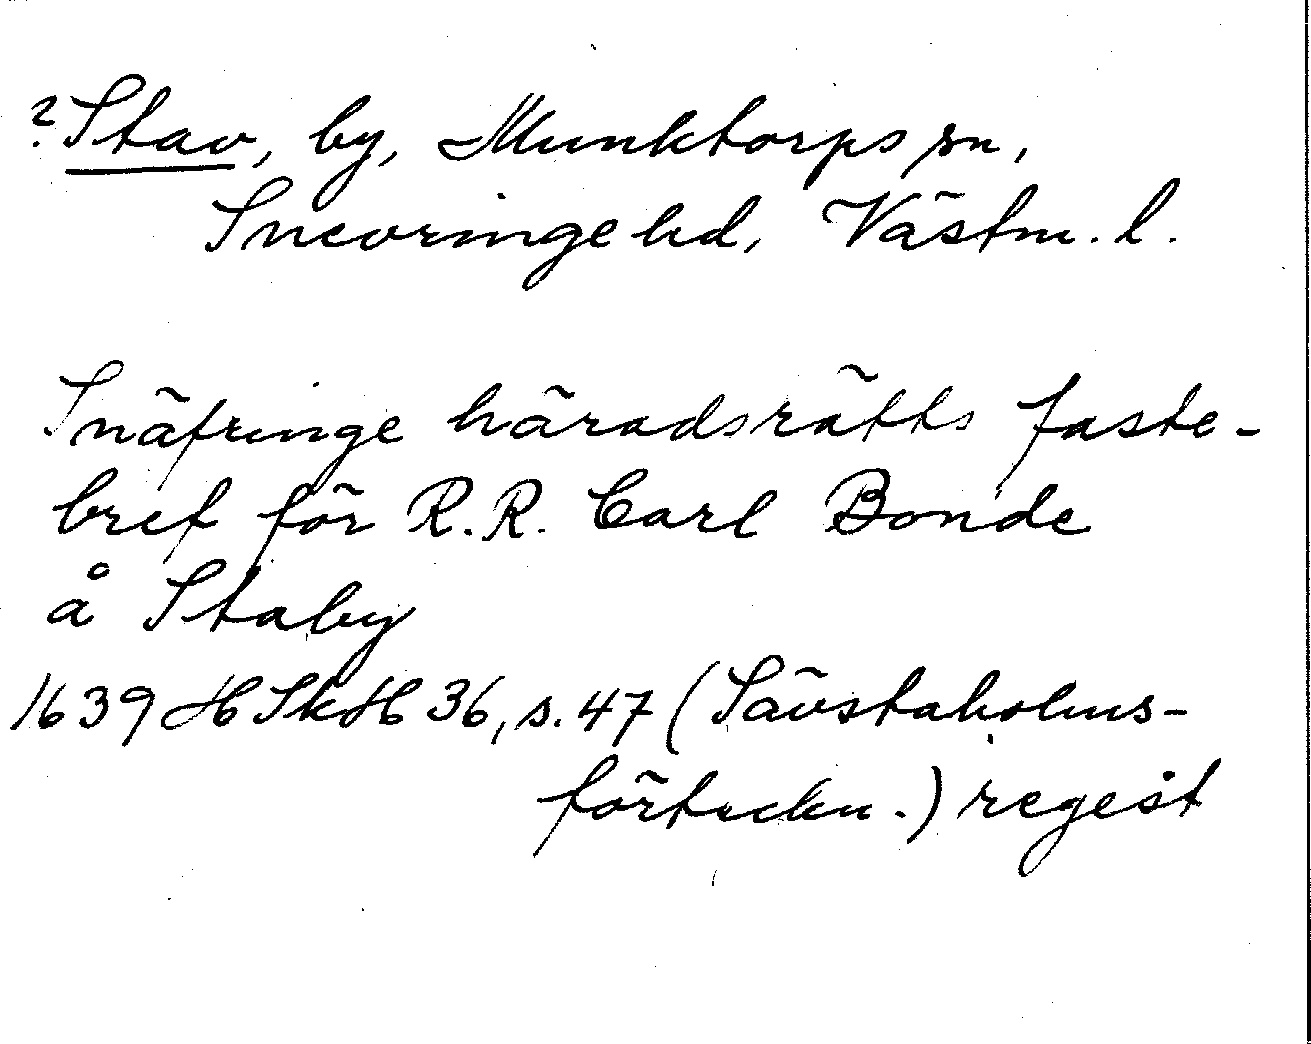 ? Stav, by, Munktorps sn,
Snevringe hd, Västm. l.
Snäfringe häradsrätts faste-
bref för R.R. Carl Bonde
å Staby
1639 HSkH 36, s. 47 (Sävstaholms-
förteckn.) regest